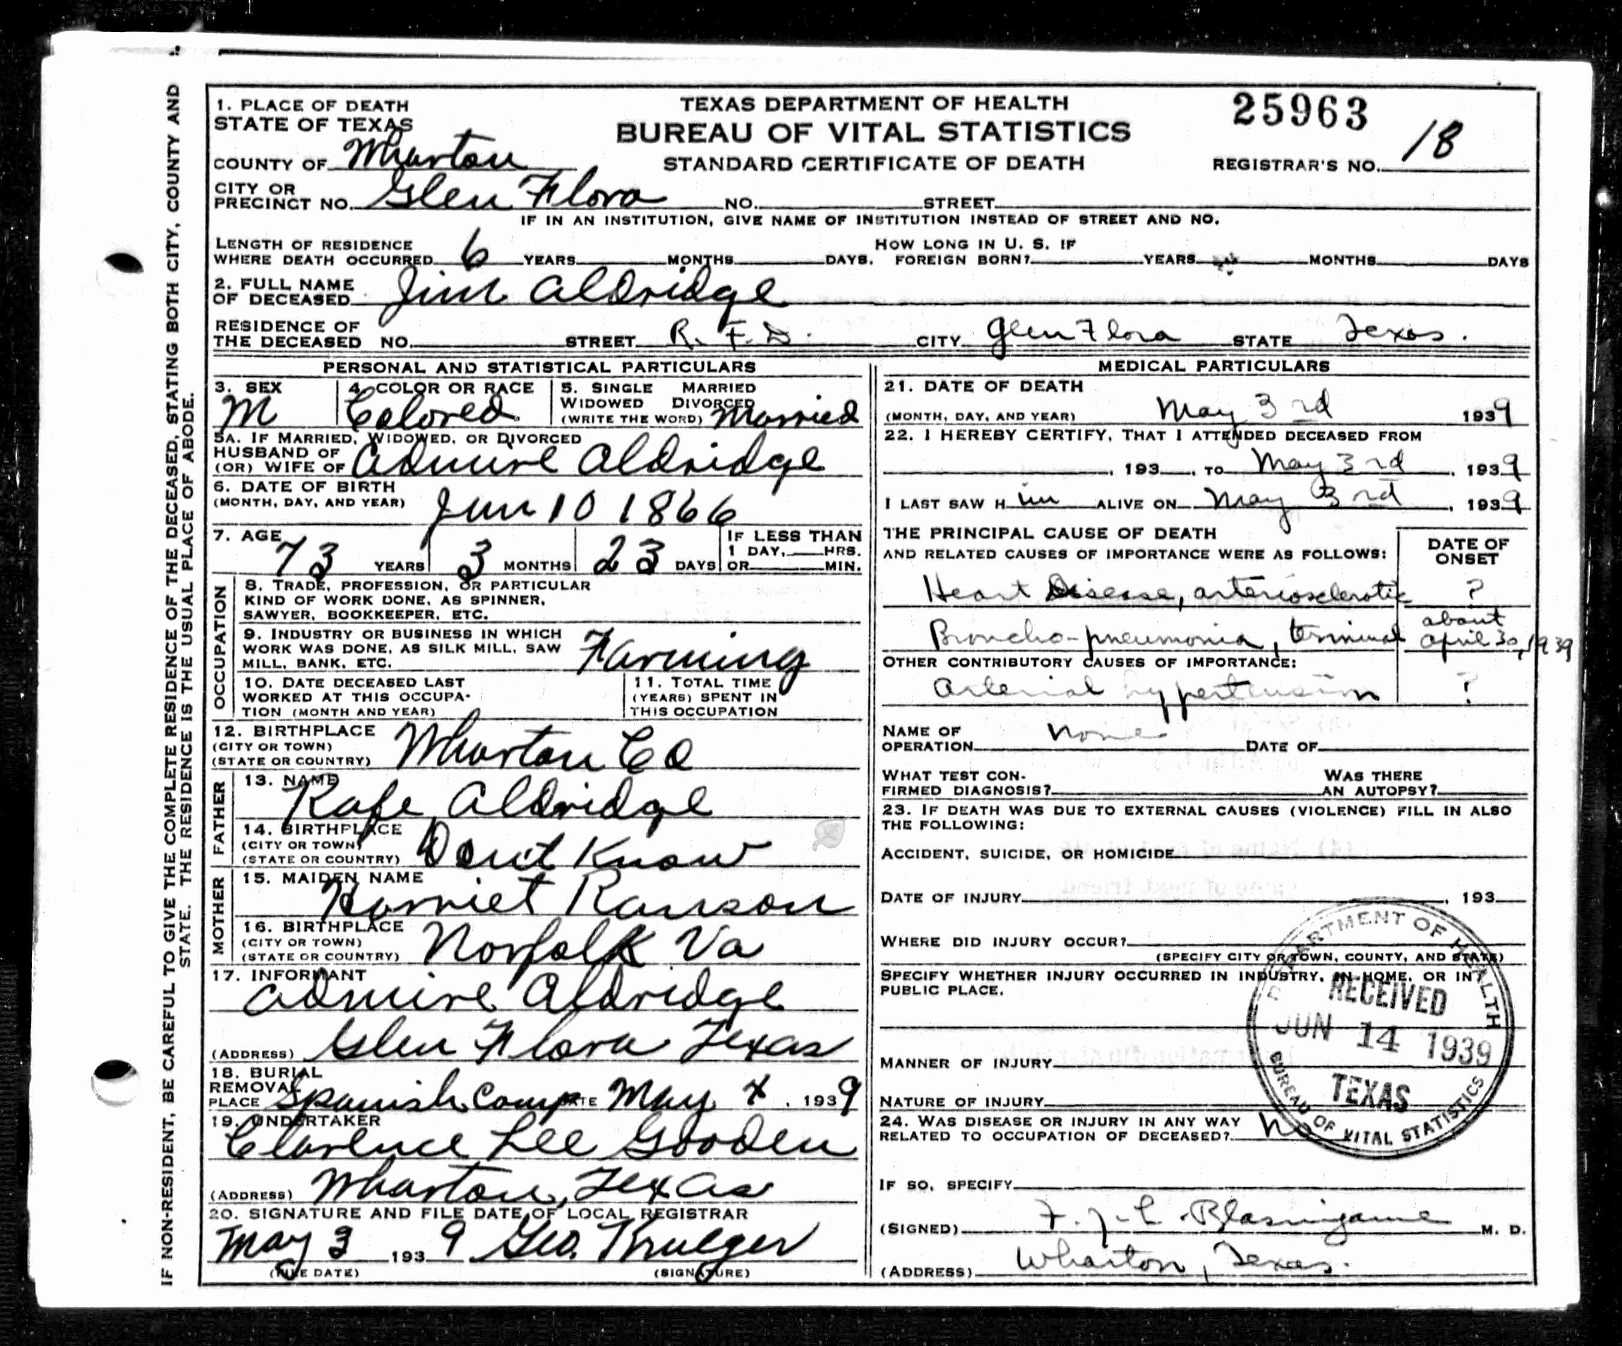 IF NON-RESIDENT, BE CAREFUL TO GIVE THE COMPLETE RESIDENCE OF THE DECEASED, STATING BOTH CITY, COUNTY AND
STATE. THE RESIDENCE IS THE USUAL PLACE OF ABODE.
1. PLACE OF DEATH
STATE OF TEXAS
COUNTY OF Wharton
TEXAS DEPARTMENT OF HEALTH
BUREAU OF VITAL STATISTICS
STANDARD CERTIFICATE OF DEATH
25963
REGISTRAR'S NO. 18
CITY OR
PRECINCT NO. Glen Flora NO. STREET
IF IN AN INSTITUTION, GIVE NAME OF INSTITUTION INSTEAD OF STREET AND NO.
LENGTH OF RESIDENCE
WHERE DEATH OCCURRED 6 YEARS MONTHS DAYS.
HOW LONG IN U. S. IF
FOREIGN BORN? YEARS MONTHS DAYS
2. FULL NAME
OF DECEASED Jim Aldridge
RESIDENCE OF
THE DECEASED NO. STREET R. F. D. CITY Glen Flora STATE Texas.
PERSONAL AND STATISTICAL PARTICULARS
3. SEX
M
4. COLOR OR RACE
Colored
5. SINGLE MARRIED
WIDOWED DIVORCED
(WRITE THE WORD) Married
5A. IF MARRIED, WIDOWED, OR DIVORCED
HUSBAND OF
(OR) WIFE OF Admire Aldridge
6. DATE OF BIRTH
(MONTH, DAY, AND YEAR) Jan 10 1866
7. AGE
73 YEARS 3 MONTHS 23 DAYS
IF LESS THAN
1 DAY, HRS.
OR MIN.
OCCUPATION
8. TRADE, PROFESSION, OR PARTICULAR
KIND OF WORK DONE, AS SPINNER,
SAWYER, BOOKKEEPER, ETC.
9. INDUSTRY OR BUSINESS IN WHICH
WORK WAS DONE, AS SILK MILL, SAW
MILL, BANK, ETC. Farming
10. DATE DECEASED LAST
WORKED AT THIS OCCUPA-
TION (MONTH AND YEAR)
11. TOTAL TIME
(YEARS) SPENT IN
THIS OCCUPATION
12. BIRTHPLACE
(CITY OR TOWN)
(STATE OR COUNTRY) Wharton Co
FATHER
13. NAME
Rafe Aldridge
14. BIRTHPLACE
(CITY OR TOWN)
(STATE OR COUNTRY) Don't Know
MOTHER
15. MAIDEN NAME
Harriet Ranson
16. BIRTHPLACE
(CITY OR TOWN)
(STATE OR COUNTRY) Norfolk Va
17. INFORMANT
Admire Aldridge
(ADDRESS) Glen Flora Texas
18. BURIAL
REMOVAL
PLACE Spanish Camp DATE May 4, 1939
19. UNDERTAKER
Clarence Lee Gooden
(ADDRESS) Wharton, Texas
20. SIGNATURE AND FILE DATE OF LOCAL REGISTRAR
May 3 1939 Geo. Krueger
(FILE DATE) (SIGNATURE)
MEDICAL PARTICULARS
21. DATE OF DEATH
(MONTH, DAY, AND YEAR) May 3rd 1939
22. I HEREBY CERTIFY, THAT I ATTENDED DECEASED FROM
, 193 , TO May 3rd , 1939
I LAST SAW H im ALIVE ON May 3rd , 1939
THE PRINCIPAL CAUSE OF DEATH
AND RELATED CAUSES OF IMPORTANCE WERE AS FOLLOWS:
DATE OF
ONSET
Heart Disease, arteriosclerotic ?
Broncho-pneumonia, terminal about April 30, 1939
OTHER CONTRIBUTORY CAUSES OF IMPORTANCE:
Arterial hypertension ?
NAME OF
OPERATION None DATE OF
WHAT TEST CON-
FIRMED DIAGNOSIS?
WAS THERE
AN AUTOPSY?
23. IF DEATH WAS DUE TO EXTERNAL CAUSES (VIOLENCE) FILL IN ALSO
THE FOLLOWING:
ACCIDENT, SUICIDE, OR HOMICIDE
DATE OF INJURY , 193
WHERE DID INJURY OCCUR?
(SPECIFY CITY OR TOWN, COUNTY, AND STATE)
SPECIFY WHETHER INJURY OCCURRED IN INDUSTRY, IN HOME, OR IN
PUBLIC PLACE.
MANNER OF INJURY
NATURE OF INJURY
24. WAS DISEASE OR INJURY IN ANY WAY
RELATED TO OCCUPATION OF DECEASED? No
IF SO, SPECIFY
(SIGNED) F. J. L. Blasingame M. D.
(ADDRESS) Wharton, Texas.
DEPARTMENT OF HEALTH
RECEIVED
JUN 14 1939
TEXAS
BUREAU OF VITAL STATISTICS